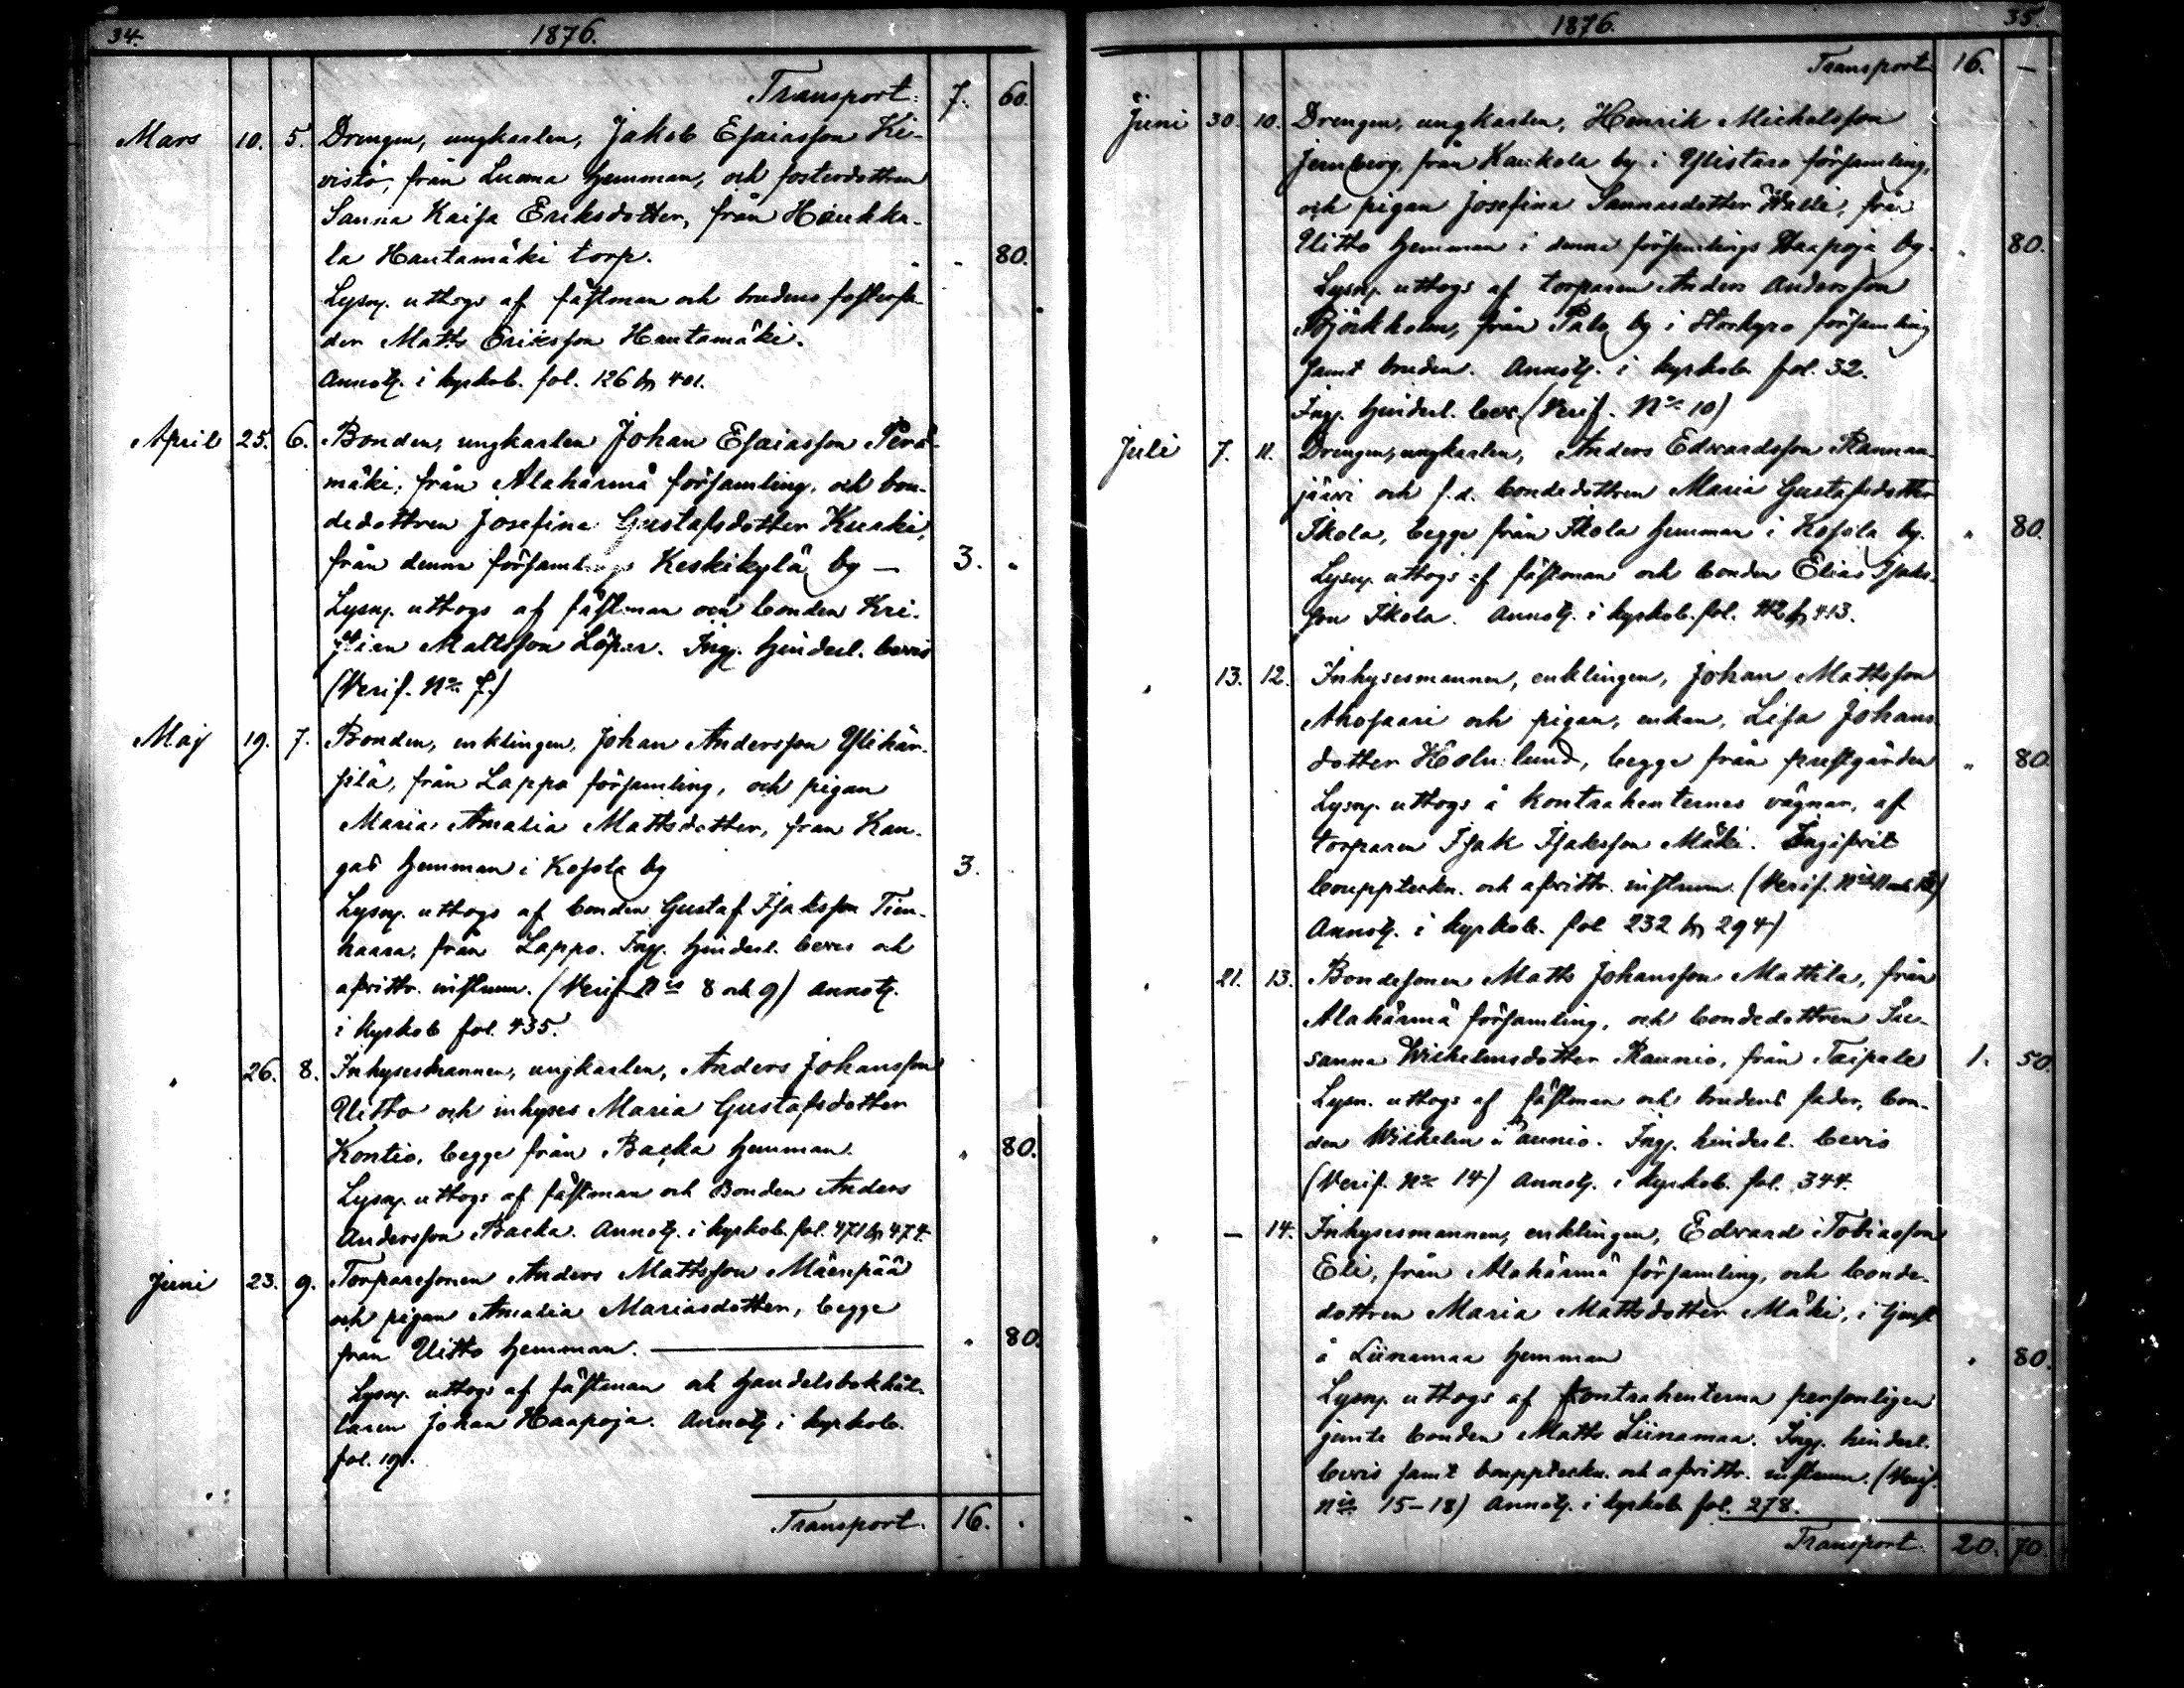 34. 1876.
Transport. 7. 60.
Mars 10. 5. Drengen, ungkarlen, Jakob Esaiasson Ki-
vistö, från Luoma hemman, och fosterdottren
Sanna Kaisa Eriksdotter, från Haukka-
la Hautamäki torp. " - 80.
Lysn. uttogs af fästman och brudens fosterfa-
der Matts Eriksson Hautamäki.
Annot. i kyrkob. fol. 126 och 401.
April 25. 6. Bonden, ungkarlen Johan Esaiasson Perä-
mäki, från Alahärmä församling, och bon-
dedottren Josefina Gustafsdotter Kurki,
från denna församlings Keskikylä by — 3. "
Lysn. uttogs af fästman och bonden Kri-
stian Mattsson Löpar. Ing. hinderl. bevis
(Verif. No 7.)
Maj 19. 7. Bonden, enklingen, Johan Andersson Ylihär-
silä, från Lappo församling, och pigan
Maria Amalia Mattsdotter, från Kan-
gas hemman i Kosola by 3.
Lysn. uttogs af bonden Gustaf Isaksson Tien-
haara, från Lappo. Ing. hinderl. bevis och
afvittr. instrum. (Verif. Nis 8 och 9) Annot.
i kyrkob fol. 435.
" 26. 8. Inhysesmannen, ungkarlen, Anders Johansson
Uitto och inhyses Maria Gustafsdotter
Kontio, begge från Backa hemman. " 80.
Lysn. uttogs af fästman och Bonden Anders
Andersson Backa. Annot. i kyrkob. fol. 471 och 474.
Juni 23. 9. Torparesonen Anders Mattsson Mäenpää
och pigan Amalia Mariasdotter, begge
från Uitto hemman. — " 80.
Lysn. uttogs af fästman och handelsbokhål-
laren Johan Haapoja. Annot. i kyrkob.
fol. 19.
Transport. 16. .
1876. 35.
Transport 16. —
Juni 30. 10. Drengen, ungkarlen, Henrik Michelsson
Jernberg, från Kaukola by i Ylistaro församling,
och pigan Josefina Sannasdotter Walli, från
Uitto hemman i denna församlings Haapoja by. " 80.
Lysn. uttogs af torparen Anders Andersson
Björkholm, från Palo by i Storkyro församling
samt bruden. Annot. i kyrkob. fol. 32.
Ing. hinderl. bev. (Verif. No 10)
Juli 7. 11. Drengen, ungkarlen, Anders Edvardsson Rannan-
järvi och f.d. bondedottren Maria Gustafsdotter
Ikola, begge från Ikola hemman i Kosola by. " 80.
Lysn. uttogs af fästman och bonden Elias Isaks-
son Ikola. Annot. i kyrkob. fol. 412 och 413.
" 13. 12. Inhysesmannen, enklingen, Johan Mattsson
Ahosaari och pigan, enkan, Lisa Johans-
dotter Holmlund, begge från prestgården " 80.
Lysn. uttogs å kontrahenternes vägnar, af
torparen Isak Isaksson Mäki. Ingifvit
bouppteckn. och afvittr. instrum. (Verif. Nis 11 och 12)
Annot. i kyrkob. fol 232 och 294)
" 21. 13. Bondesonen Matts Johansson Mattila, från
Alahärmä församling, och bondedottren Su-
sanna Wilhelmsdotter Raunio, från Taipale 1. 50.
Lysn. uttogs af fästman och brudens fader, bon-
den Wilhelm Raunio. Ing. hinderl. bevis
(Verif. No 14) Annot. i kyrkob. fol. 344.
" — 14. Inhysesmannen, enklingen, Edvard Tobiasson
Eli, från Alahärmä församling, och bonde-
dottren Maria Mattsdotter Mäki, i tjenst
å Liinamaa hemman " 80.
Lysn. uttogs af kontrahenterna personligen
jemte bonden Matts Liinamaa. Ing. hinderl.
bevis samt bouppteckn. och afvittr. instrum. (Verif.
Nis 15-18) Annot. i kyrkob. fol. 278.
Transport. 20. 70.